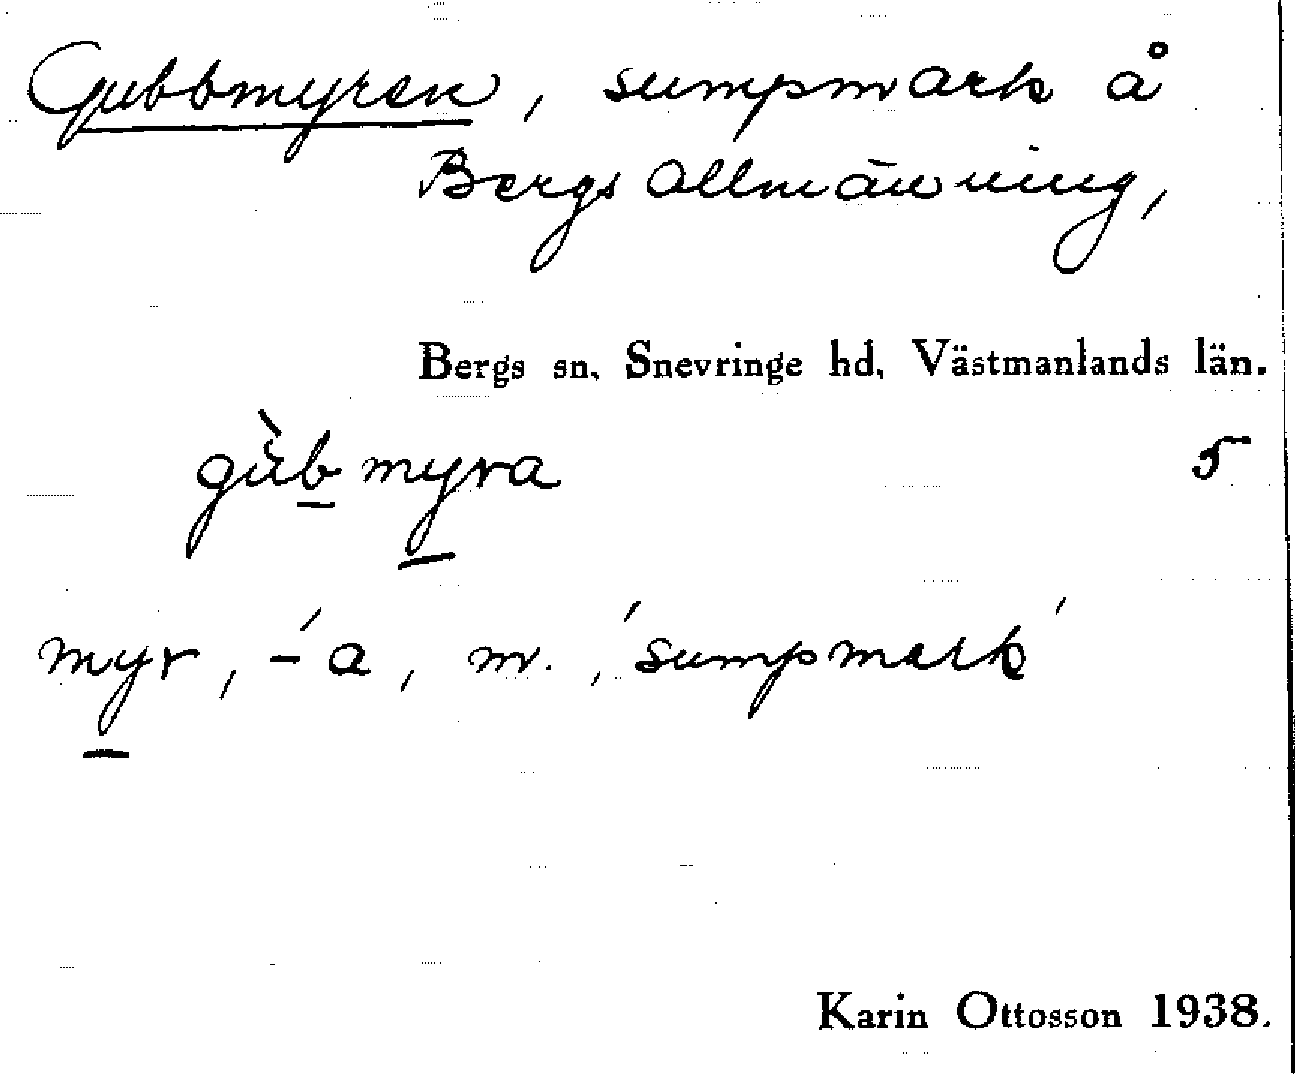 Gubbmyren, sumpmark å
Bergs allmänning,
Bergs sn, Snevringe hd, Västmanlands län.
gu̇̀b̲my̲ra 5
my̲r, -́a, m., 'sumpmark'
Karin Ottosson 1938.